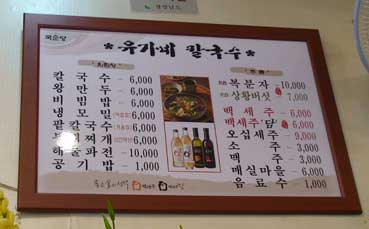 국순당
*유가네 칼국수*
칼국수 - 6,000
왕만두 - 6,000
비빔밥 - 6,000
냉모밀 - 6,000
팥칼국수 - 6,000
찌개 - 6,000
해물파전 - 10,000
공기밥 - 1,000
복분자 - 10,000
상황버섯 - 7,000
백세주 - 6,000
백세주'담' - 6,000
오십세주 - 9,000
소주 - 3,000
맥주 - 3,000
매실마을 - 6,000
음료수 - 1,000